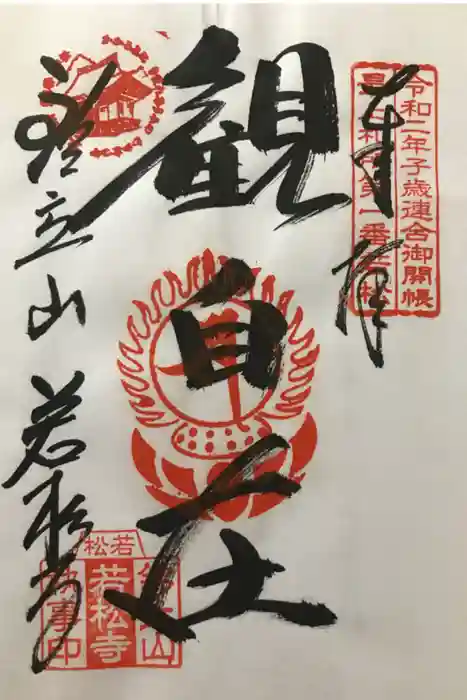 奉拝
令和二年子歳連合御開帳
最上札所第一番若松
観自在
鈴立山 若松寺
若松
鈴立山
若松寺
執事印